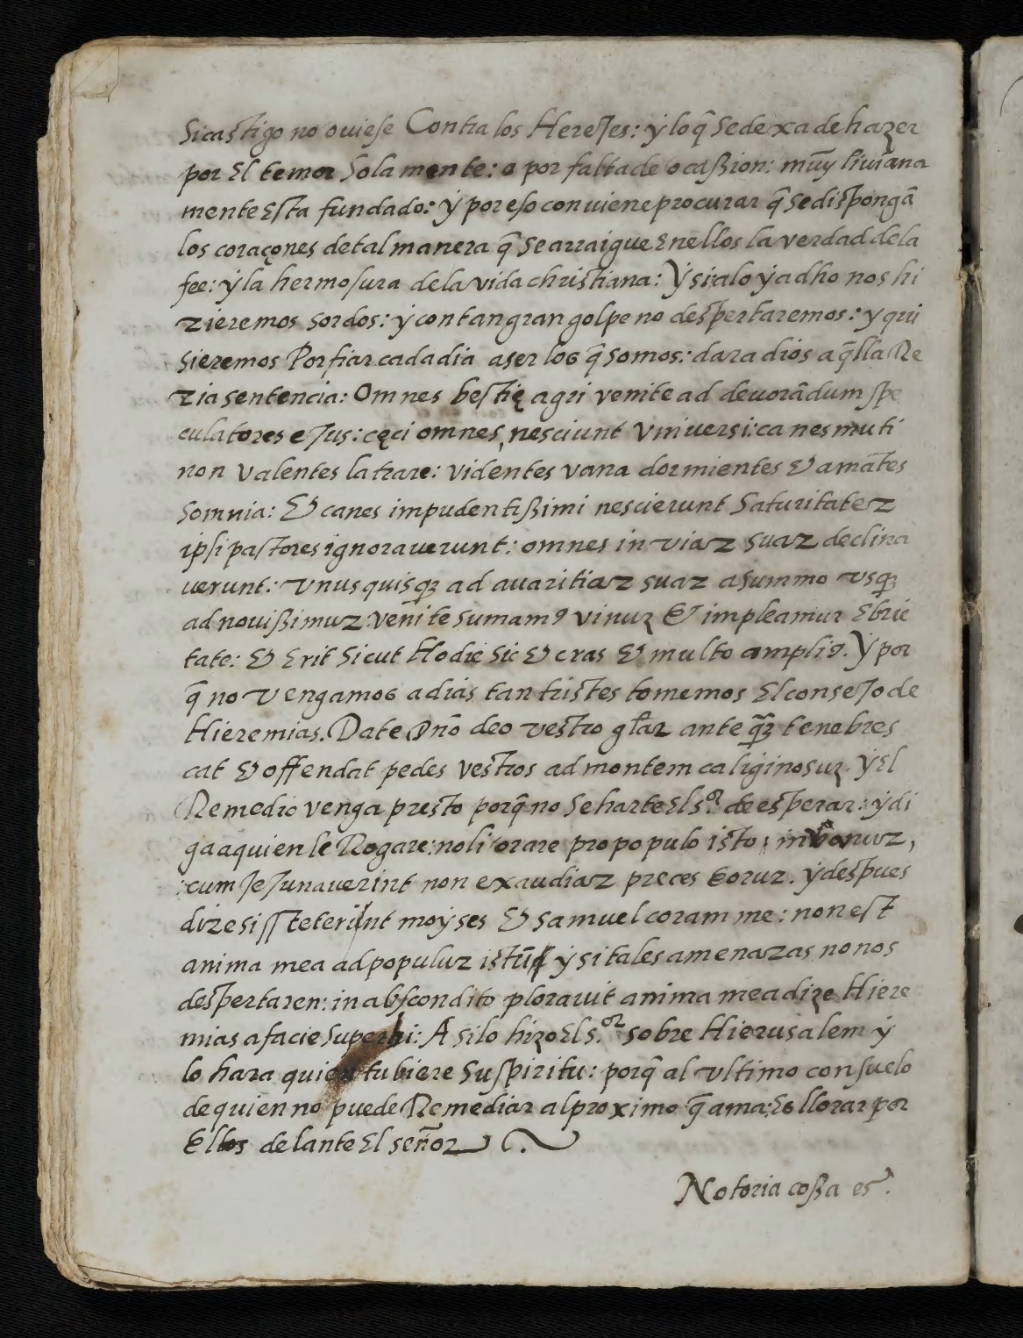 Si castigo no ouiese Contra los Herejes: ÿ lo q̃ se dexa de hazer
por El temor Sola mente: o por falta de ocaßion: muÿ liuiana
mente Esta fundado: ÿ por eso conuiene procurar q̃ se dispongã
los coraçones de tal manera q̃ Se arraigue En ellos la verdad de la
fee: ÿ la hermosura de la vida christiana: Ÿ si a lo ÿa dho nos hi
zieremos sordos: ÿ con tan gran golpe no despertaremos: y qui
sieremos Porfiar cada dia a ser los q̃ somos: dara dios aq̃lla Re
zia sentencia: Omnes bestię agri venite ad deuorãdum spe
culatores ejus: cęci omnes, nesciunt vniuersi: canes muti
non valentes latrare: videntes vana dormientes & amãtes
somnia: & canes impudentißimi nescierunt Saturitatez
ipsi pastores ignorauerunt: omnes in viaz suaz declina
uerunt: vnus quisqz ad auaritiaz suaz a summo vsqz
ad nouißimuz: venite sumam9 vinuz & impleamur Ebrie
tate: & Erit Sicut Hodie Sic & cras & multo ampli9. Ÿ por
q̃ no vengamos a dias tan tristes tomemos El consejo de
Hieremias. Date Dño deo vestro gl̃az ante q̃z tenebres
cat & offendat pedes vestros ad montem caliginosuz. ÿ El
Remedio venga presto porq̃ no se harte El s.or de esperar: ÿ di
ga a quien le Rogare: noli orare pro populo isto; in bonuz,
cum jejunauerint non exaudiaz preces Eoruz. ÿ despues
dize si ssteterint moÿses & Samuel coram me: non est
anima mea ad populuz istũ ÿ si tales amenazas no nos
despertaren: in abscondito plorauit anima mea dize Hiere
mias a facie superbi: Asi lo hizo El s.or sobre Hierusalem ÿ
lo hara quien tubiere Su spiritu: porq̃ al vltimo consuelo
de quien no puede Remediar al proximo q̃ ama; Es llorar por
Ellos delante El señor
Notoria coßa es.